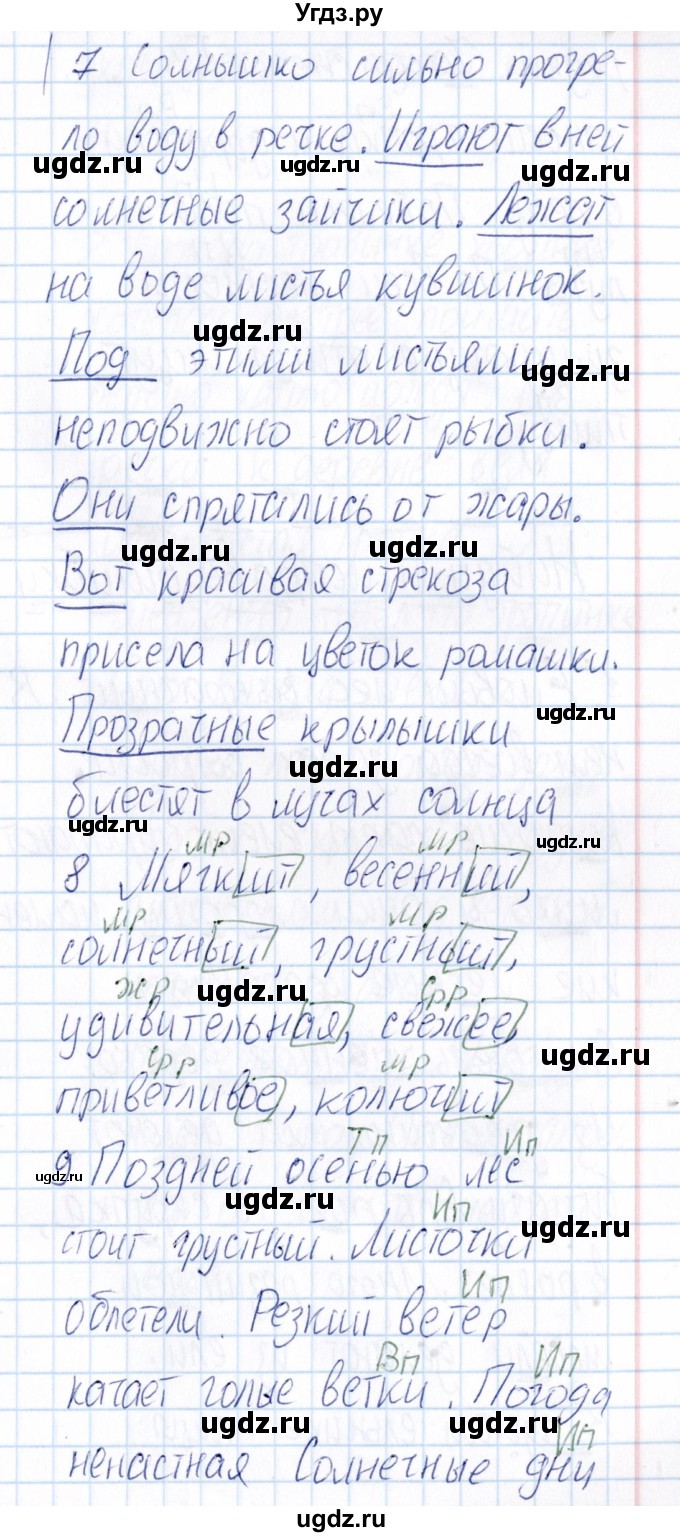 Угдз.ру
7 Солнышко сильно прогре-
ло воду в речке. Играют в ней
ugdz.ru ugdz.ru ugdz.ru
солнечные зайчики. Лежат
на воде листья кувшинок.
ugdz.ru
Под этими листьями
ugdz.ru
неподвижно стоят рыбки.
Они спрятались от жары.
ugdz.ru ugdz.ru
Вот красивая стрекоза
присела на цветок ромашки.
ugdz.ru
Прозрачные крылышки
ugdz.ru
блестят в лучах солнца
ugdz.ru
мр мр ugdz.ru
8 Мягкий, весенний,
мр мр
солнечный, грустный,
жр ugdz.ru срр
удивительная, свежее,
срр мр ugdz.ru
приветливое, колючий
Тп Ип
9 Поздней осенью лес
ugdz.ru
ugdz.ru Ип ugdz.ru
стоит грустный. Листочки
Ип
облетели. Резкий ветер
Вп Ип
качает голые ветки. Погода
ugdz.ru ugdz.ru Ип
ненастная Солнечные дни
ugdz.ru